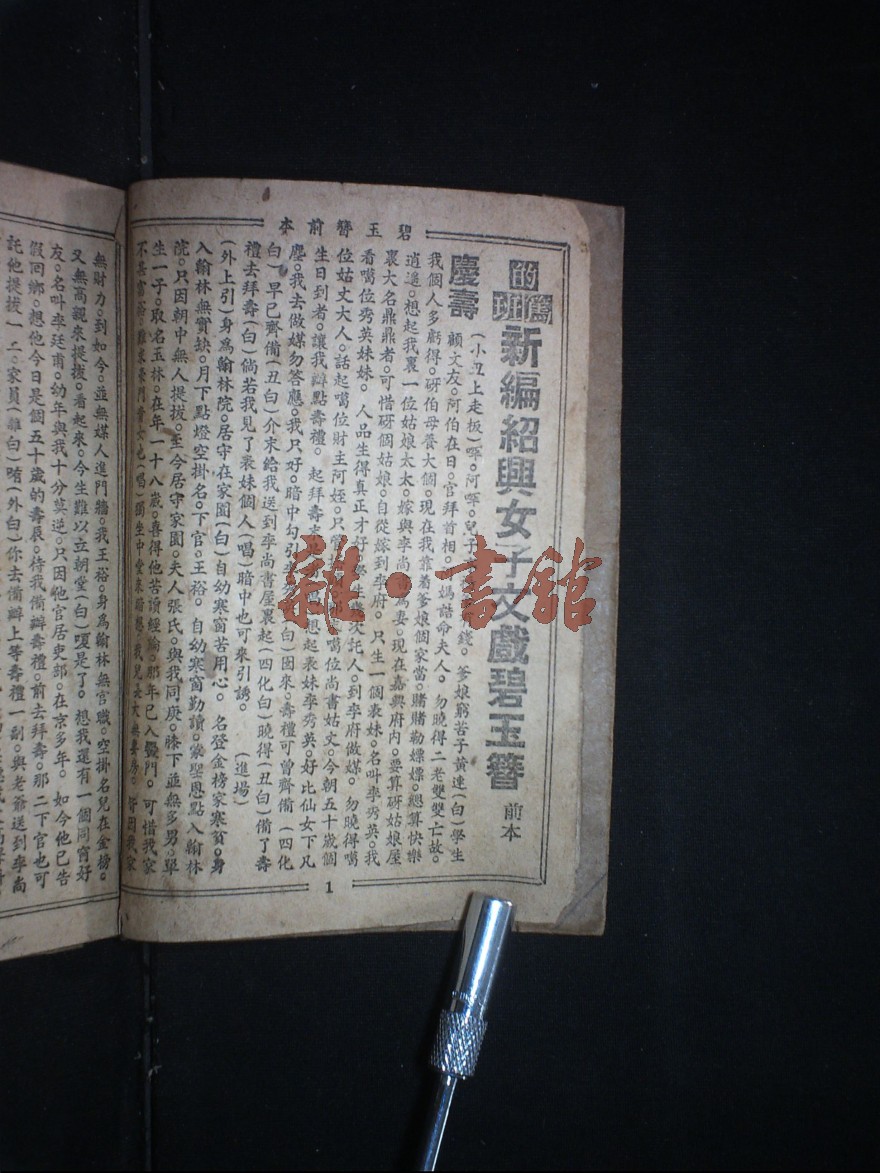 碧玉簪前本
的篤班
新編紹興女子文戲碧玉簪 前本
慶壽
(小丑上走板)啊。阿啊。兒子 錢。爹娘窮苦子黃連(白)學生
顧文友。阿伯在日。官拜首相。 媽誥命夫人。勿曉得二老雙雙亡故。
我個人多虧得。砑伯母養大個。現在我靠着爹娘個家當。賭賭勒嫖嫖。總算快樂
逍遙。想起我裏一位姑娘太太。嫁與李尚 爲妻。現在嘉興府內。要算砑姑娘屋
裏大名鼎鼎者。可惜砑個姑娘。自從嫁到李府。只生一個表妹。名叫李秀英。我
看噶位秀英妹妹。人品生得真正才好。學生 次託人。到李府做媒。勿曉得噶
位姑丈大人。話起噶位財主阿姪。只 噶位尚書姑丈。今朝五十歲個
生日到者。讓我辦點壽禮。起拜壽 想起表妹李秀英。好比仙女下凡
塵。我去做媒勿答應。我只好。暗中勾引 白)囡來。壽禮可曾齊備(四化
白)早已齊備(丑白)介末給我送到李尚書屋裏起(四化白)曉得(丑白)備了壽
禮去拜壽(白)倘若我見了表妹個人(唱)暗中也可來引誘。 (進場)
(外上引)身爲翰林院。居守在家園(白)自幼寒窗苦用心。名登金榜家寒貧。身
入翰林無實缺。月下點燈空掛名。下官。王裕。自幼寒窗勤讀。蒙聖恩點入翰林
院。只因朝中無人提拔。至今居守家園。夫人張氏。與我同庚。膝下並無多男。單
生一子。取名玉林。在年一十八歲。喜得他苦讀經綸。那年已入黌門。可惜我家
不甚富裕。難求豪門 女也(唱)獨坐中堂來暗想。我兒長大無妻房。皆因我家
無財力。到如今。並無媒人進門牆。我王裕。身爲翰林無官職。空掛名兒在金榜。
又無高親來提拔。看起來。今生難以立朝堂(白)嗄是了。想我還有一個同窗好
友。名叫李廷甫。幼年與我十分莫逆。只因他官居吏部。在京多年。如今他已告
假回鄉。想他今日是個五十歲的壽辰。待我備辦壽禮。前去拜壽。那二下官也可
託他提拔一二。家員(雜白)唷(外白)你去備辦上等壽禮一副。與老爺送到李尚
1
雜·書館